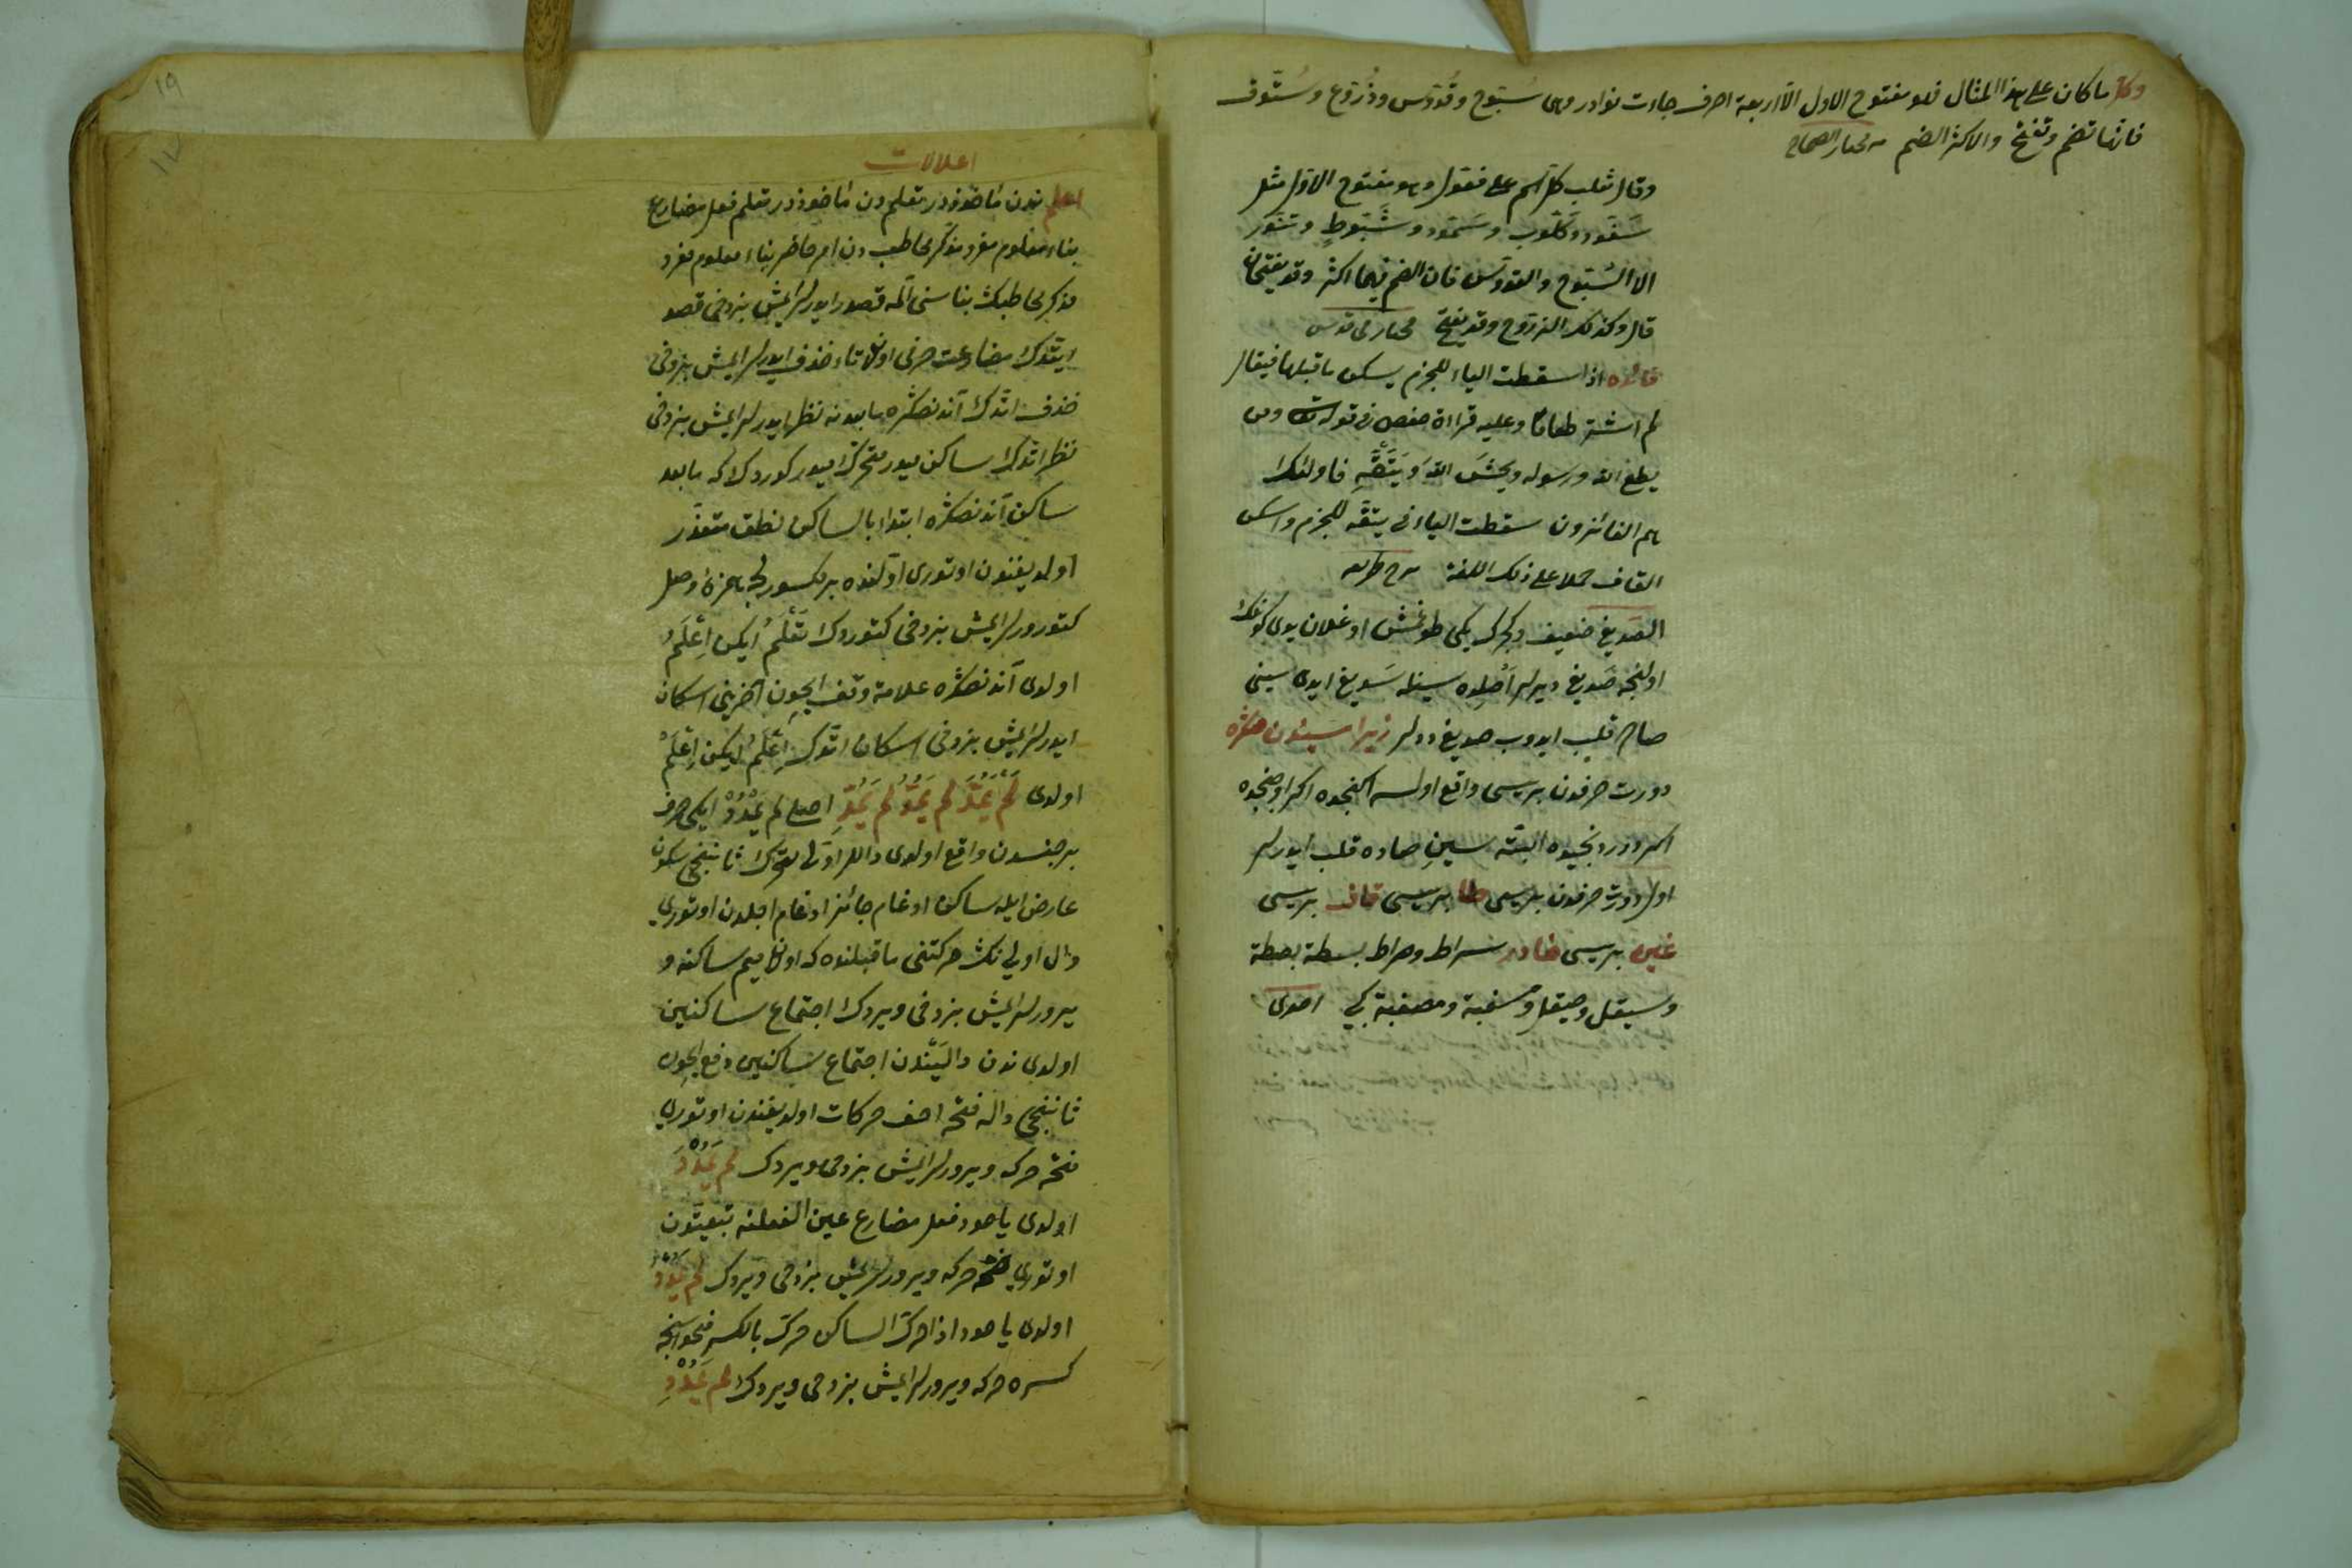 وكل ما كان على هذا المثال فهو مفتوح الاول الا اربعة احرف جاءت نوادر وهى سُبّوح وقُدّوس وذُرّوح وسُتّوق
فانها تضم وتفتح والاكثر الضم مختار الصحاح
وقال ثعلب كل اسم على فعّول وهو مفتوح الاوّل مثل
سَفّود وكَلّوب وسَمّور وشَبّوطٍ وتنّور
الا السّبّوح والقدّوس فان الضم فيهما اكثر وقد يفتحان
قال وكذلك الذرّوح وقد يفتح مختار قدس
فائده اذا سقطت الياء للجزم يسكن ما قبلها فيقال
لم اشتر طعاما وعليه قراءة حفص فى قوله تعالى ومن
يطع الله ورسوله ويخشَ اللهَ وَيَتَّقْهِ فاولئك
هم الفائزون سقطت الياء فى يتقه للجزم واسكن
القاف حملا على ذلك اللغة
الصديغ ضعيف ديمكدر يكى طوغمش اوغلان يدى كونلك
اولنجه صَديغ ديرلر اَصْلِده سينله سَديغ ايدى سينى
صاده قلب ايدوب صديغ ديرلر زيرا سيندن صكره
دورت حرفدن بريسى واقع اولسه ايكنجيده اكر اوچنجيده
اكر دردنجيده البته سينِ صاده قلب ايدرلر
اول دورت حرفدن بريسى طا بريسى قاف بريسى
غين بريسى خادر سراط وصراط بسطة بصطة
وسيقل وصيقل ومسغبة ومصغبة كبى
اعلالات
اعلم ندن مأخوذدر تعلم دن مأخوذدر تعلم فعل مضارع
بناء معلوم مفرد مذكر مخاطب دن امر حاضر بناء معلوم مفرد
مذكر مخاطبك بناسنى آلمه قصد ايدرلرايمش بزدخى قصد
ايتدك مضارعت حرفى اولان تاء حذف ايدرلرايمش بزدخى
حذف اتدك آندنصكره مابعدنه نظر ايدرلرايمش بزدخى
نظر اتدك ساكن ميدر متحرك ميدر كوردك كه مابعد
ساكن آندنصكره ابتدا بالساكن نطق متعذّر
اولديغندن اوتورى اوّلنده بر مكسورجه همزهٔ وصل
كتورورلرايمش بزدخى كتوردك تَعْلَمُ ايكن اِعْلَمُ
اولدى آندنصكره علامة وقف ايچون آخرينى اسكان
ايدرلرايمش بزدخى اسكان اتدك اِعْلَمُ ايكن اِعْلَمْ
اولدى لَمْ يَمُدَّ لم يَمُدُّ لم يَمُدِّ اصلى لم يَمْدُدْ ايكى حرف
بر جنسدن واقع اولدى دالار اوّلى متحرك ثانيجى سكون
عارض ايله ساكن ادغام جائز ادغام اجلدن اوتورى
دال اولى نك حركتنى ماقبلنده كه اولان ميم ساكنه و
يرورلرايمش بزدخى ويردك اجتماع ساكنين
اولدى ندن دالَيْندن اجتماع ساكنين دفع ايچون
ثانيجى داله فتحه اخف حركات اولديغندن اوتورى
فتحه حركه ويرورلرايمش بزدخى ويردك لم يَمُدْدَ
اولدى ياخود فعل مضارع عين الفعلنه تبعيتدن
اوتورى ضمّه حركه ويرورلرايمش بزدخى ويردك لم يَمُدْدُ
اولدى ياخود اذا حرك الساكن حرك بالكسر فحواسنجه
كسره حركه ويرورلرايمش بزدخى ويردك لم يَمُدْدِ